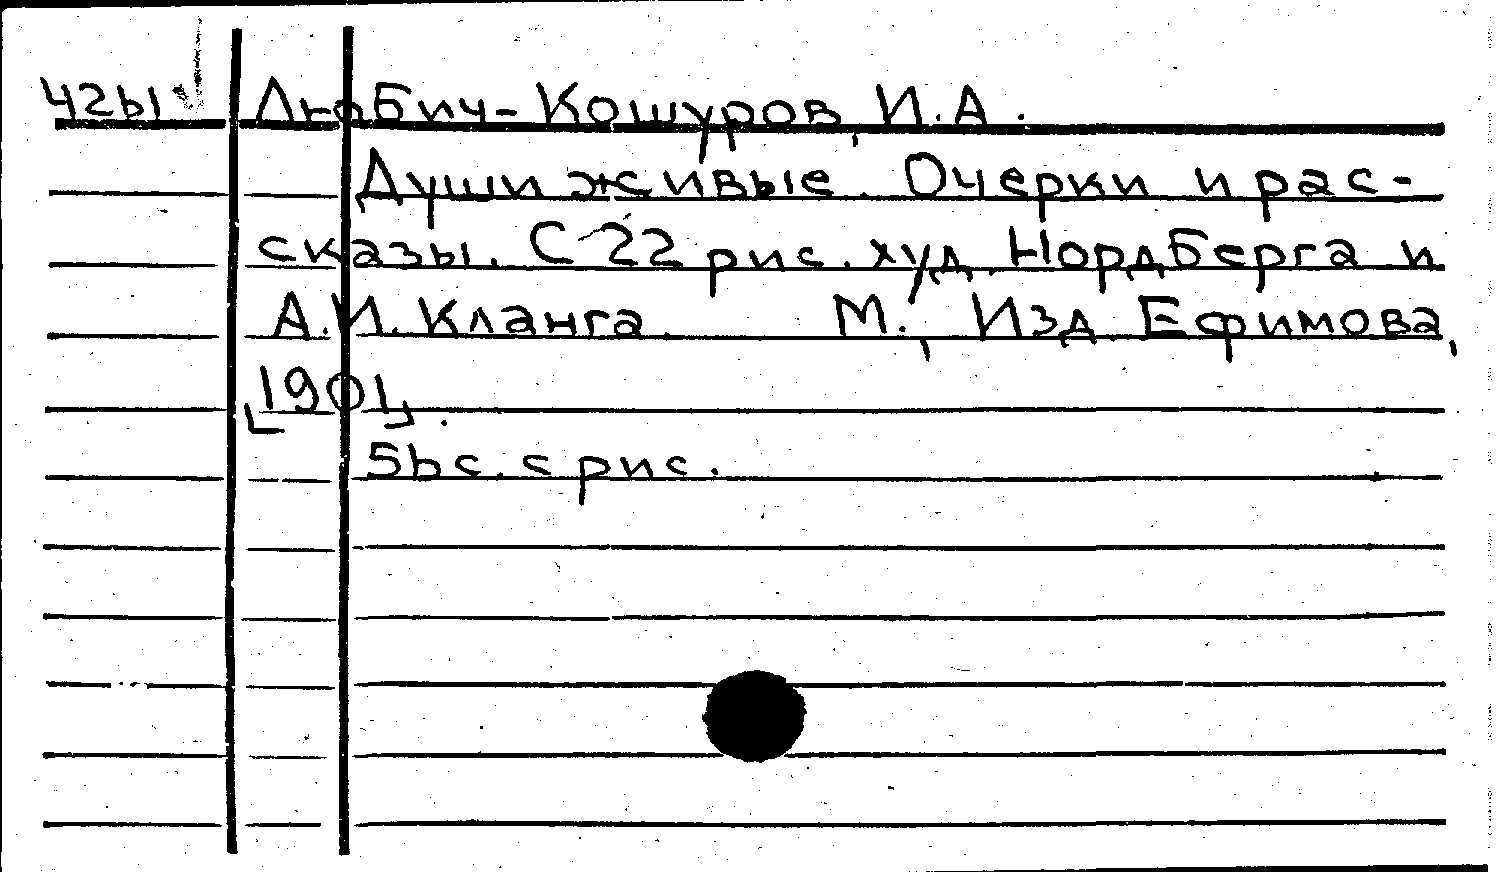 Ч2Ы Любич-Кошуров, И.А.
Души живые. Очерки и рас-
сказы. С 22 рис. худ. Нордберга и
А.И. Кланга. М., Изд. Ефимова,
[1901].
5bс. с рис.